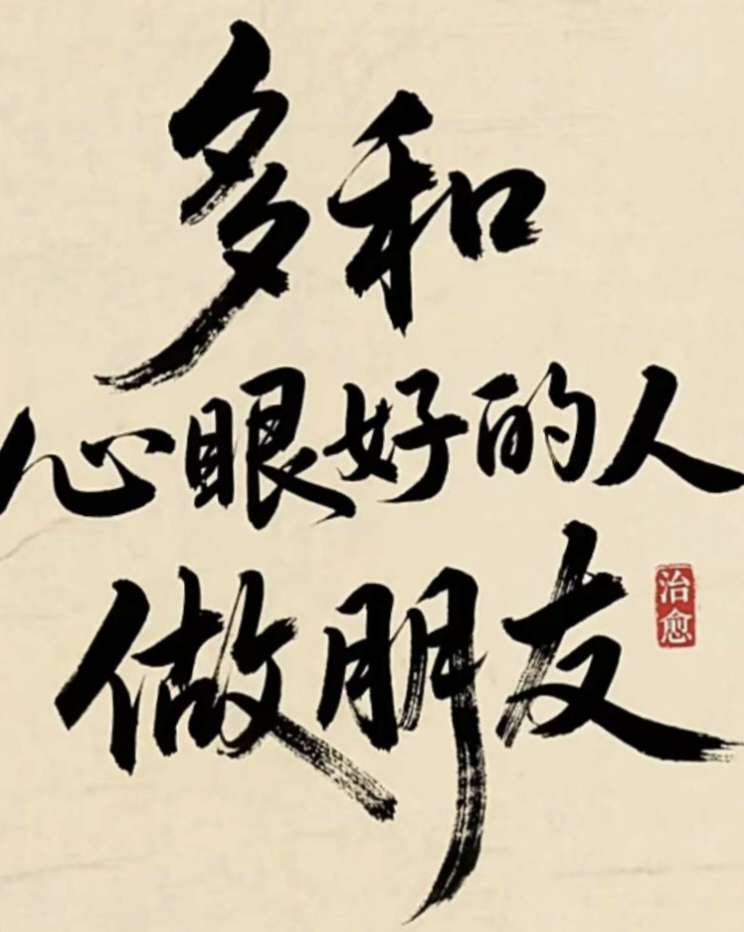 多和
心眼好的人
做朋友
治愈